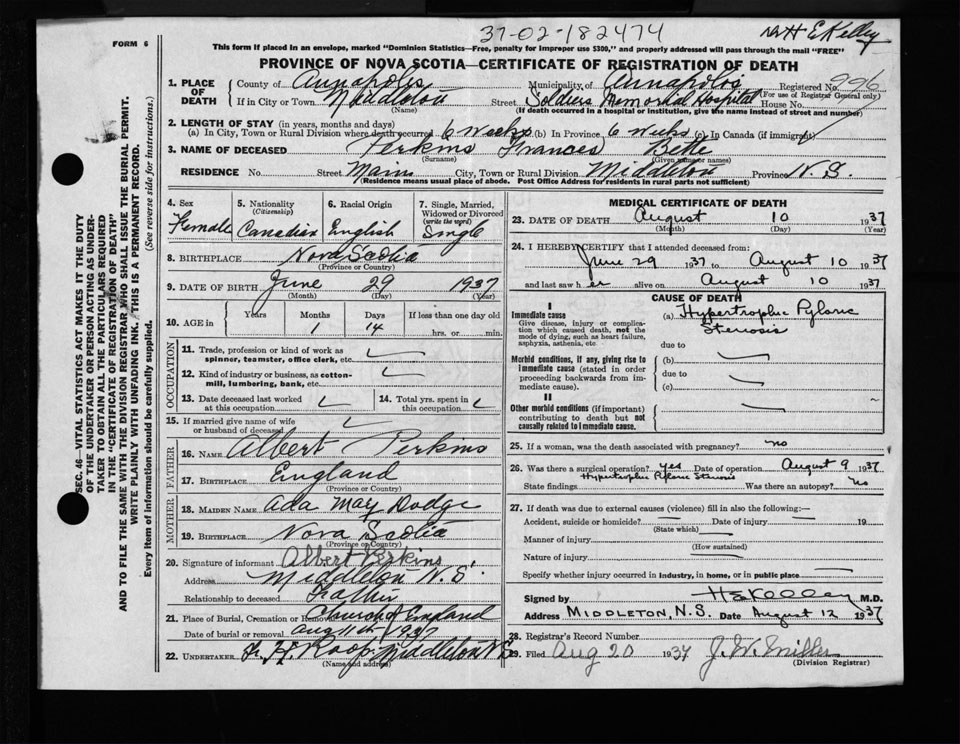 37-02-182474
Dr H E Kelley
FORM 6
This form if placed in an envelope, marked "Dominion Statistics—Free, penalty for improper use $300," and properly addressed will pass through the mail "FREE"
PROVINCE OF NOVA SCOTIA—CERTIFICATE OF REGISTRATION OF DEATH
1. PLACE OF DEATH County of Annapolis Municipality of Annapolis Registered No. 996
(For use of Registrar General only)
If in City or Town Middleton Street Soldiers Memorial Hospital House No.
(If death occurred in a hospital or institution, give the name instead of street and number)
2. LENGTH OF STAY (in years, months and days)
(a) In City, Town or Rural Division where death occurred 6 Weeks (b) In Province 6 Weeks (c) In Canada (if immigrant)
3. NAME OF DECEASED Perkins Frances Bette
(Surname) (Given name or names)
RESIDENCE No. Street Main City, Town or Rural Division Middleton Province N.S.
(Residence means usual place of abode. Post Office Address for residents in rural parts not sufficient)
4. Sex Female
5. Nationality (Citizenship) Canadian
6. Racial Origin English
7. Single, Married, Widowed or Divorced (write the word) Single
8. BIRTHPLACE Nova Scotia
(Province or Country)
9. DATE OF BIRTH June 29 1937
(Month) (Day) (Year)
10. AGE in Years Months 1 Days 14 If less than one day old hrs. or min.
OCCUPATION
11. Trade, profession or kind of work as spinner, teamster, office clerk, etc.
12. Kind of industry or business, as cotton-mill, lumbering, bank, etc.
13. Date deceased last worked at this occupation
14. Total yrs. spent in this occupation
15. If married give name of wife or husband of deceased
FATHER
16. NAME Albert Perkins
17. BIRTHPLACE England
(Province or Country)
MOTHER
18. MAIDEN NAME Ada May Dodge
19. BIRTHPLACE Nova Scotia
(Province or Country)
20. Signature of informant Albert Perkins
Address Middleton N.S.
Relationship to deceased Father
21. Place of Burial, Cremation or Removal England
Date of burial or removal Aug 11th 1937
22. UNDERTAKER Middleton N.S.
(Name and address)
MEDICAL CERTIFICATE OF DEATH
23. DATE OF DEATH August 10 1937
(Month) (Day) (Year)
24. I HEREBY CERTIFY that I attended deceased from:
June 29 1937 to August 10 1937
and last saw her alive on August 10 1937
CAUSE OF DEATH
I
Immediate cause
Give disease, injury or complication which caused death, not the mode of dying, such as heart failure, asphyxia, asthenia, etc
(a) Hypertrophic Pyloric Stenosis
due to
Morbid conditions, if any, giving rise to Immediate cause (stated in order proceeding backwards from immediate cause).
(b)
due to
(c)
II
Other morbid conditions (if important) contributing to death but not causally related to Immediate cause.
25. If a woman, was the death associated with pregnancy? no
26. Was there a surgical operation? yes Date of operation August 9 1937
State findings Hypertrophic Pyloric Stenosis Was there an autopsy? no
27. If death was due to external causes (violence) fill in also the following:—
Accident, suicide or homicide? Date of injury 19
(State which)
Manner of injury
(How sustained)
Nature of injury
Specify whether injury occurred in industry, in home, or in public place
Signed by H E Kelley M.D.
Address MIDDLETON, N.S. Date August 12 1937
28. Registrar's Record Number
29. Filed Aug 20 1937 J. W. Miller
(Division Registrar)
SEC. 46—VITAL STATISTICS ACT MAKES IT THE DUTY
OF THE UNDERTAKER OR PERSON ACTING AS UNDER-
TAKER TO OBTAIN ALL THE PARTICULARS REQUIRED
IN THE "CERTIFICATE OF REGISTRATION OF DEATH"
AND TO FILE THE SAME WITH THE DIVISION REGISTRAR WHO SHALL ISSUE THE BURIAL PERMIT.
WRITE PLAINLY WITH UNFADING INK. THIS IS A PERMANENT RECORD.
Every item of information should be carefully supplied. (See reverse side for instructions.)